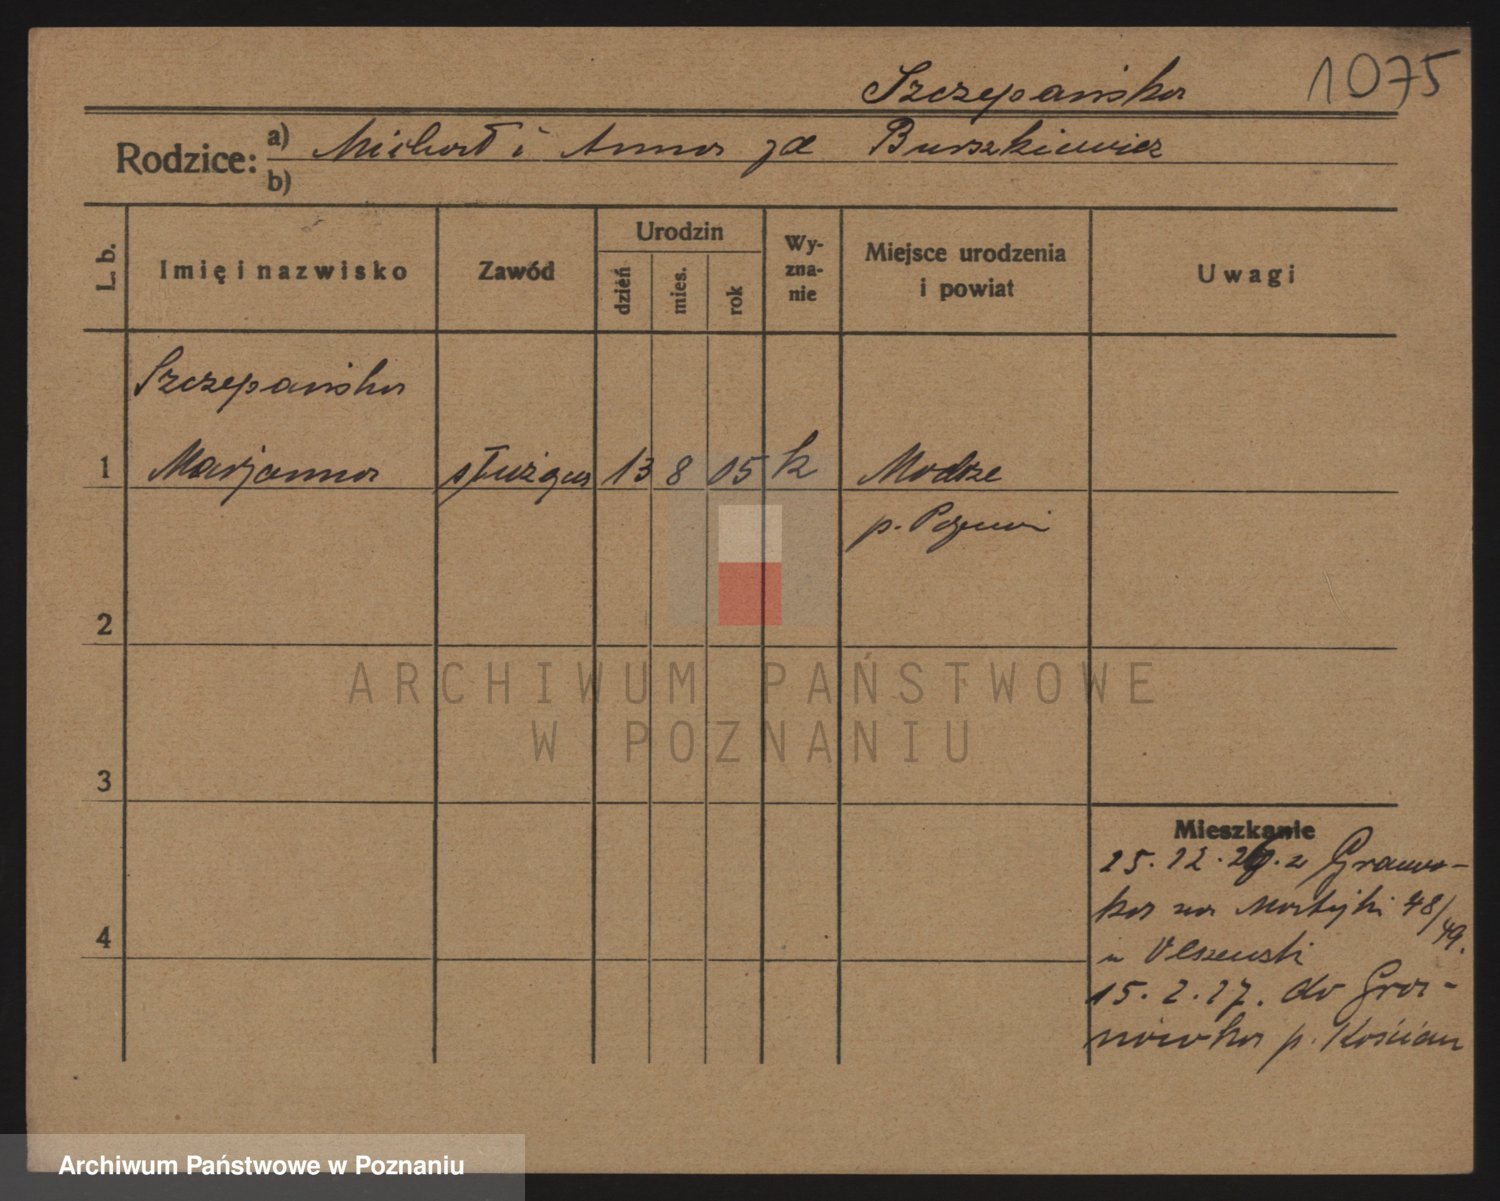 Szczepańska
1075
Rodzice: a) Michał i Anna zd Burszkiewicz
b)
L. b.
Imię i nazwisko
Zawód
Urodzin
dzień
mies.
rok
Wy-
zna-
nie
Miejsce urodzenia
i powiat
Uwagi
Szczepańska
1 Marjanna służąca 13 8 05 k Modrze
p.
2
ARCHIWUM PAŃSTWOWE
W POZNANIU
3
Mieszkanie
15.12.26. z Granow-
ka na 48/49.
4
15.2.27. do Gra-
nówka p. Kościan
Archiwum Państwowe w Poznaniu